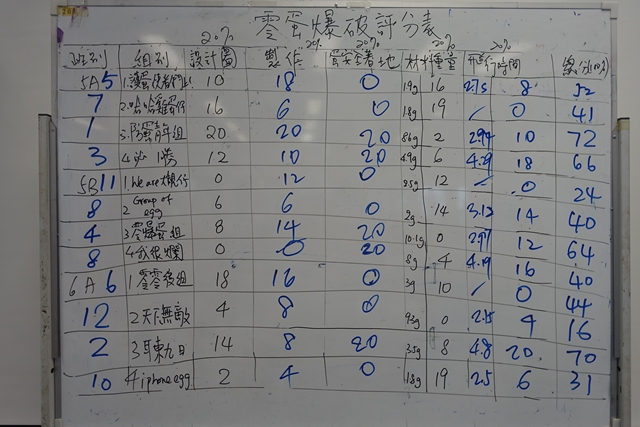 20%
零蛋爆破評分表
班別 組別 設計圖 製作 20% 蛋安全着地 20% 材料重量 20% 飛行時間 20% 總分(100%)
5A 5 1. 10 18 0 19g 16 2.15 8 52
7 2.哈哈雞蛋仔 16 6 0 18g 19 / 0 41
1 3.防蛋青年組 20 20 20 86g 2 2.97 10 72
3 4.必勝 12 10 20 49g 6 4.19 18 66
5B 11 1.We are 懶行 0 12 0 25g 12 / 0 24
8 2 Group of egg 6 6 0 2g 14 3.12 14 40
4 3.零爆蛋組 8 14 20 10.1g 0 2.97 12 64
8 4.我很爛 0 0 20 8g 4 4.19 16 40
6A 6 1零零後組 18 16 0 3g 10 / 0 44
12 2天下無敵 4 8 0 93g 0 2.15 4 16
2 3耳東九日 14 8 20 35g 8 4.8 20 70
10 4 iphone egg 2 4 0 18g 19 2.5 6 31